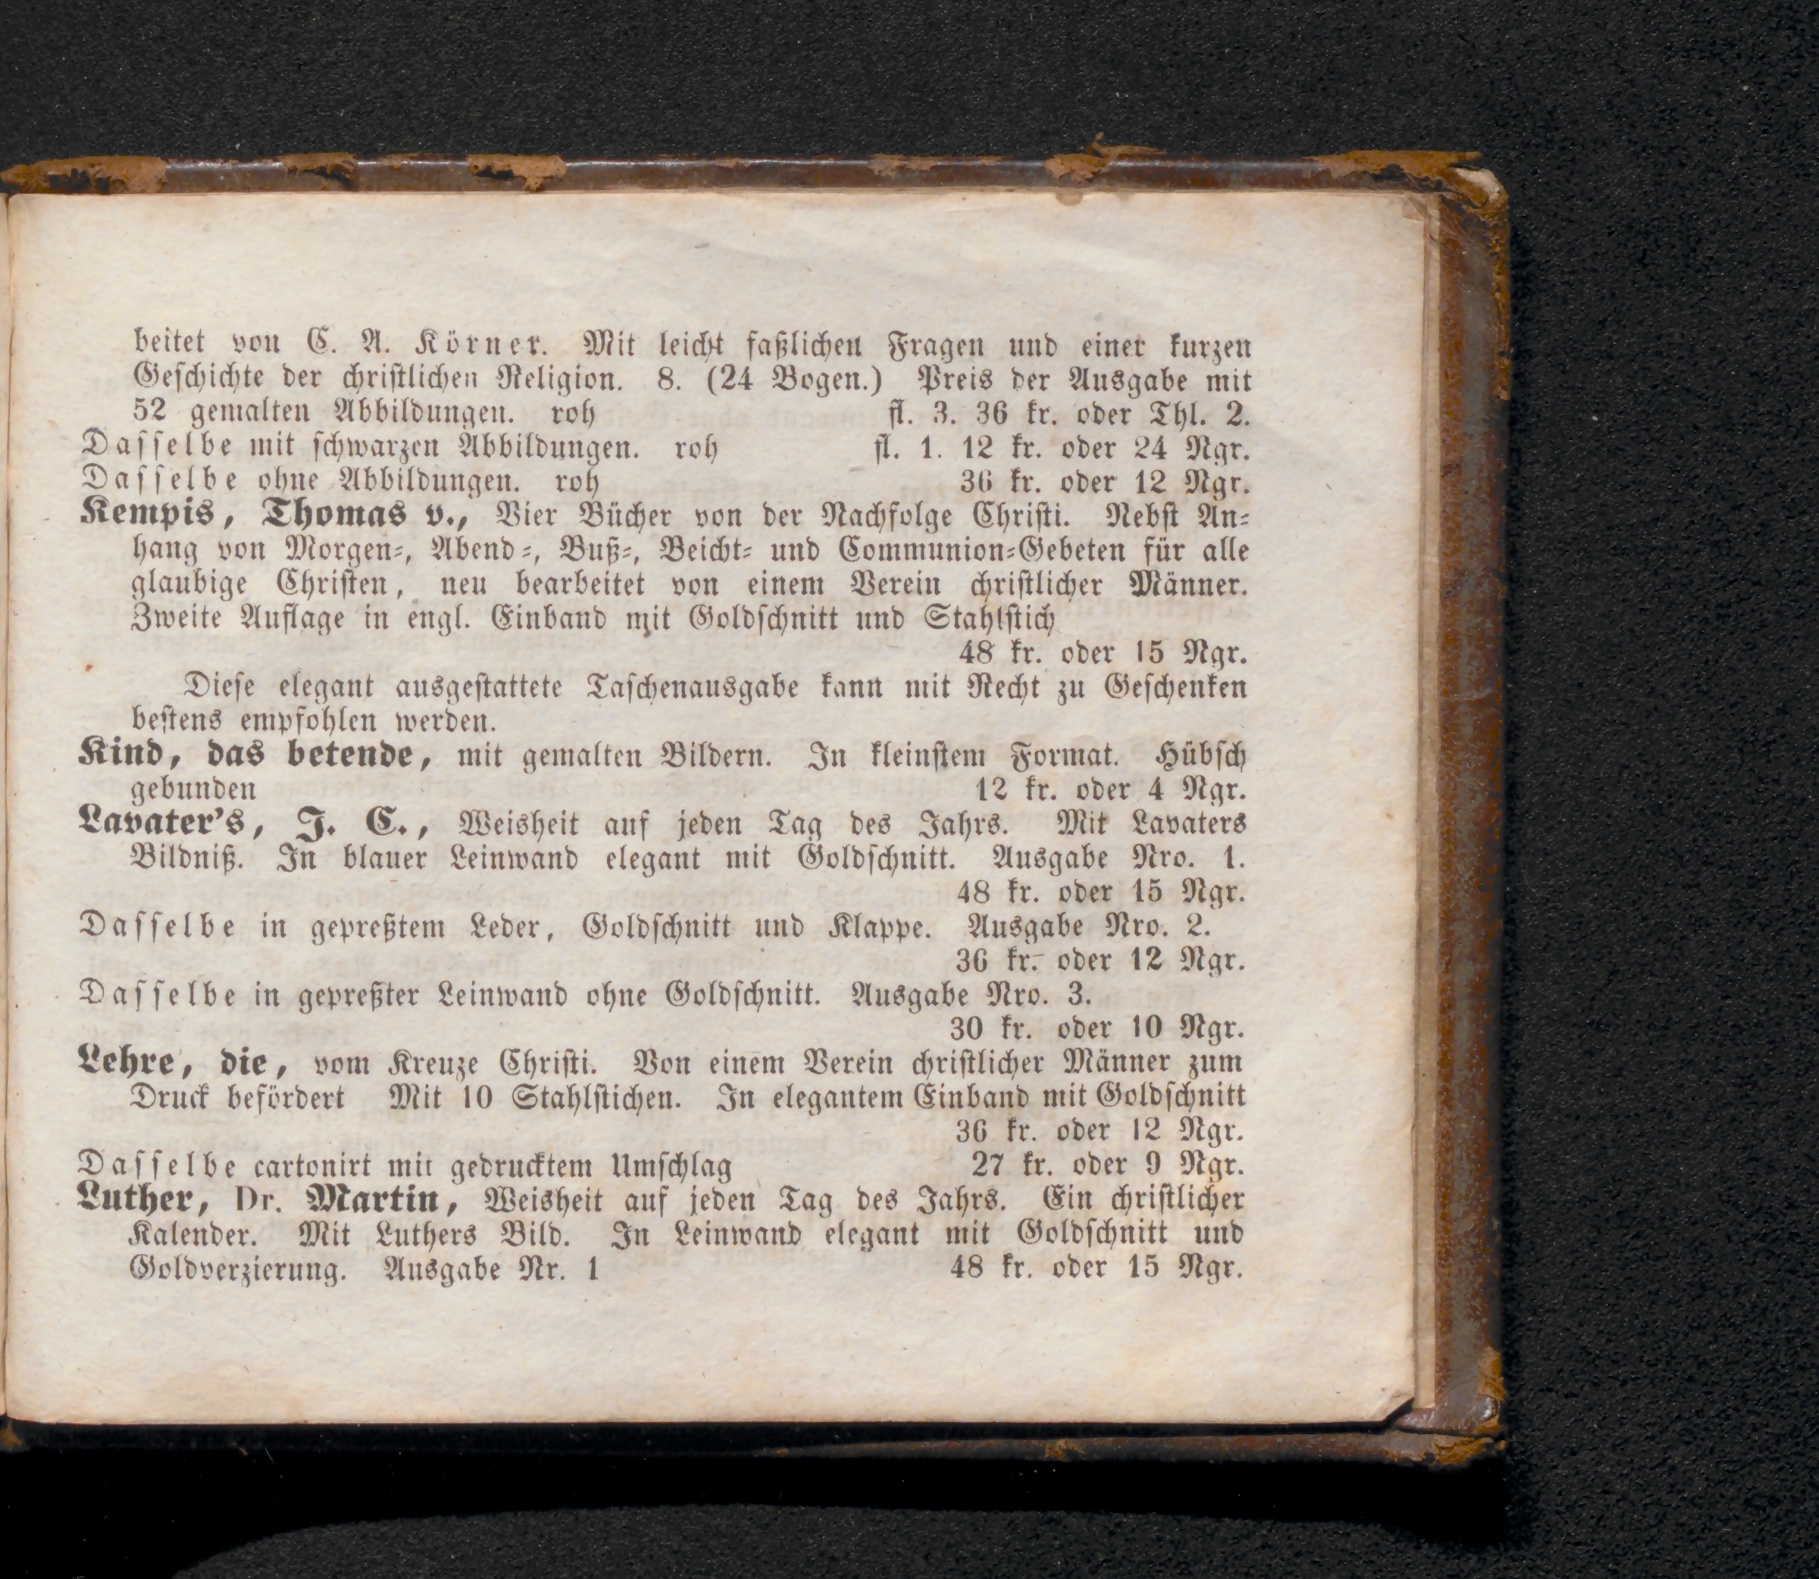 beitet von C. A. Körner. Mit leicht faßlichen Fragen und einer kurzen
Geschichte der christlichen Religion. 8. (24 Bogen.) Preis der Ausgabe mit
52 gemalten Abbildungen. roh fl. 3. 36 kr. oder Thl. 2.
Dasselbe mit schwarzen Abbildungen. roh fl. 1. 12 kr. oder 24 Ngr.
Dasselbe ohne Abbildungen. roh 36 kr. oder 12 Ngr.
Kempis, Thomas v., Vier Bücher von der Nachfolge Christi. Nebst An-
hang von Morgen-, Abend-, Buß-, Beicht- und Communion-Gebeten für alle
glaubige Christen, neu bearbeitet von einem Verein christlicher Männer.
Zweite Auflage in engl. Einband mit Goldschnitt und Stahlstich
48 kr. oder 15 Ngr.
Diese elegant ausgestattete Taschenausgabe kann mit Recht zu Geschenken
bestens empfohlen werden.
Kind, das betende, mit gemalten Bildern. In kleinstem Format. Hübsch
gebunden 12 kr. oder 4 Ngr.
Lavater's, J. C., Weisheit auf jeden Tag des Jahrs. Mit Lavaters
Bildniß. In blauer Leinwand elegant mit Goldschnitt. Ausgabe Nro. 1.
48 kr. oder 15 Ngr.
Dasselbe in gepreßtem Leder, Goldschnitt und Klappe. Ausgabe Nro. 2.
36 kr. oder 12 Ngr.
Dasselbe in gepreßter Leinwand ohne Goldschnitt. Ausgabe Nro. 3.
30 kr. oder 10 Ngr.
Lehre, die, vom Kreuze Christi. Von einem Verein christlicher Männer zum
Druck befördert Mit 10 Stahlstichen. In elegantem Einband mit Goldschnitt
36 kr. oder 12 Ngr.
Dasselbe cartonirt mit gedrucktem Umschlag 27 kr. oder 9 Ngr.
Luther, Dr. Martin, Weisheit auf jeden Tag des Jahrs. Ein christlicher
Kalender. Mit Luthers Bild. In Leinwand elegant mit Goldschnitt und
Goldverzierung. Ausgabe Nr. 1 48 kr. oder 15 Ngr.